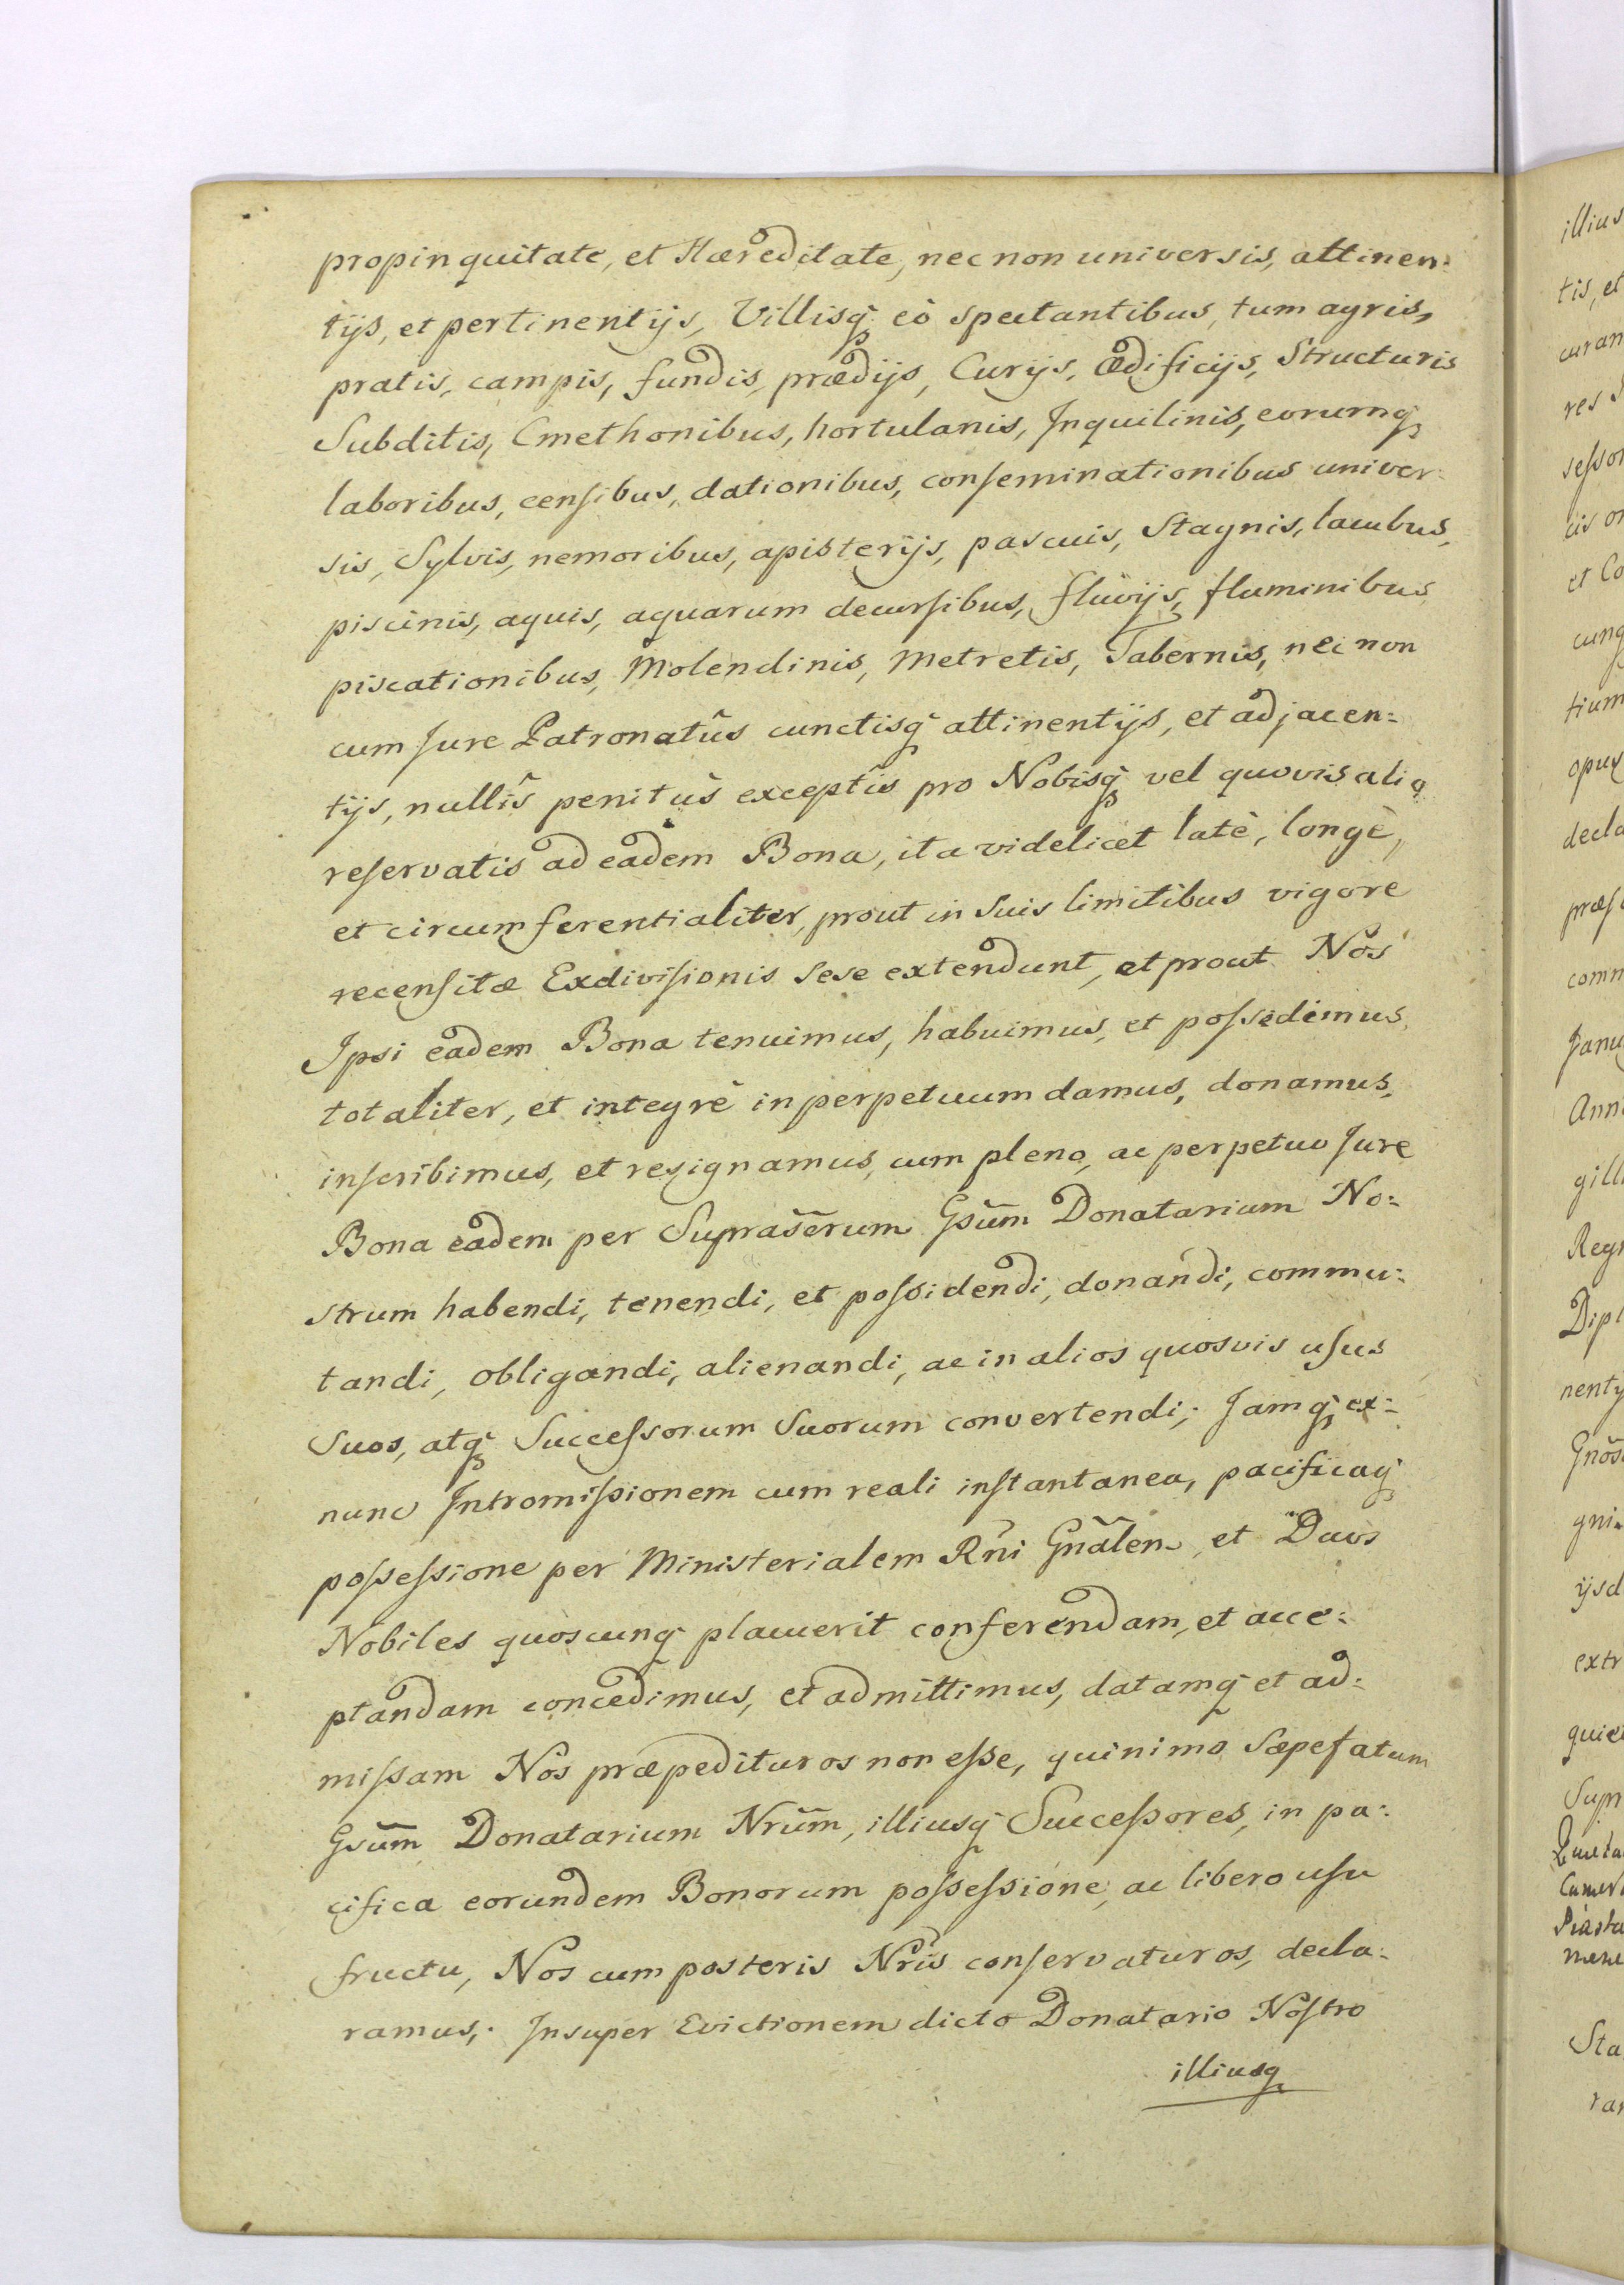 propinquitate, et Hæreditate, nec non universis, attinen:
tijs, et pertinentijs, Villisq̃ eò spectantibus, tum agris,
pratis, campis, fundis, prædijs, Curijs, ædificijs, Structuris
Subditis, Cmethonibus, hortulanis, Inquilinis, eorumq̃
laboribus, censibus, dationibus, conseminationibus univer:
sis, Sylvis, nemoribus, apisterijs, pascuis, Stagnis, lacubus,
piscinis, aquis, aquarum decursibus, fluvijs, fluminibus
piscationibus, Molendinis, Metretis, Tabernis, nec non
cum Jure Patronatûs cunctisq̃ attinentijs, et adjacen:
tijs, nullîs penitùs exceptîs pro Nobisq̃ vel quovis alio
reservatis ad eadem Bona, ita videlicet latè, longè,
et circumferentialiter, prout in suis limitibus vigore
recensitæ Exdivisionis sese extendunt, et prout Nos
Ipsi eadem Bona tenuimus, habuimus, et possedimus,
totaliter, et integrè in perpetuum damus, donamus,
inscribimus, et resignamus, cum pleno, ac perpetuo Jure
Bona eadem per Suprasc̃rum Gsũm Donatarium No:
strum habendi, tenendi, et possidendi, donandi, commu:
tandi, obligandi, alienandi, ac in alios quosvis usus
Suos, atq̃ Successorum Suorum convertendi; Jamq̃ ex:
nunc Intromissionem cum reali instantanea, pacificaq̃
possessione per Ministerialem Rñi Gñalem, et Duos
Nobiles quoscunq̃ placuerit conferendam, et acce:
ptandam concedimus, et admittimus, datamq̃ et ad:
missam Nos præpedituros non esse, quinimo Sæpefatum
Gsũm Donatarium Nrũm, illiusq̃ Successores, in pa:
cifica eorundem Bonorum possessione, ac libero usu
fructu, Nos cum posteris Nr̃is conservaturos, decla:
ramus; Insuper Evictionem dicto Donatario Nostro
illiusq̃
illius
tis, et
curan
res
sessor
cis or
et Co
cunq
tium
decla
comm
Janu
Ann
gill
Reg
Dipl
nenty
Gnõs
gni
ijsd
extr
quie
Sta